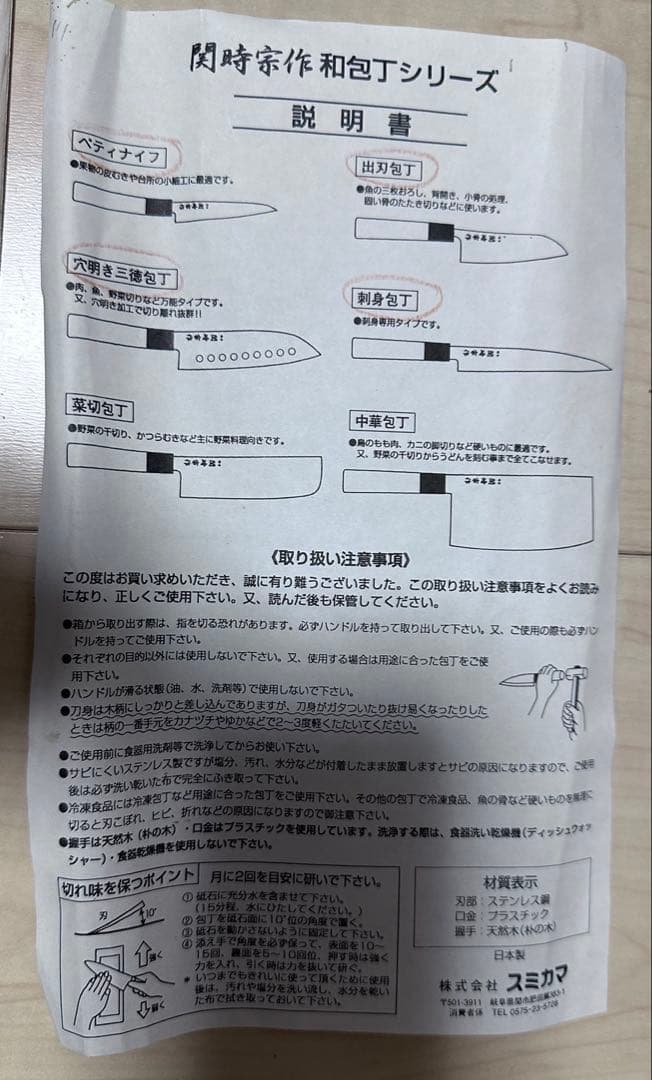 関時宗作 和包丁シリーズ
説明書
ペティナイフ
●果物の皮むきや台所の小細工に最適です。
出刃包丁
●魚の三枚おろし、背開き、小骨の処理、
固い骨のたたき切りなどに使います。
穴明き三徳包丁
●肉、魚、野菜切りなど万能タイプです。
又、穴明き加工で切り離れ抜群!!
刺身包丁
●刺身専用タイプです。
菜切包丁
●野菜の千切り、かつらむきなど主に野菜料理向きです。
中華包丁
●鳥のもも肉、カニの脚切りなど硬いものに最適です。
又、野菜の千切りからうどんを刻む事まで全てこなせます。
《取り扱い注意事項》
この度はお買い求めいただき、誠に有り難うございました。この取り扱い注意事項をよくお読み
になり、正しくご使用下さい。又、読んだ後も保管してください。
●箱から取り出す際は、指を切る恐れがあります。必ずハンドルを持って取り出して下さい。又、ご使用の際も必ずハン
ドルを持ってご使用下さい。
●それぞれの目的以外には使用しないで下さい。又、使用する場合は用途に合った包丁をご使
用下さい。
●ハンドルが滑る状態（油、水、洗剤等）で使用しないで下さい。
●刀身は木柄にしっかりと差し込んでありますが、刀身がガタついたり抜け易くなったりした
ときは柄の一番手元をカナヅチやゆかなどで2〜3度軽くたたいてください。
●ご使用前に食器用洗剤等で洗浄してからお使い下さい。
●サビにくいステンレス製ですが塩分、汚れ、水分などが付着したまま放置しますとサビの原因になりますので、ご使用
後は必ず洗い乾いた布で完全にふき取って下さい。
●冷凍食品には冷凍包丁など用途に合った包丁をご使用下さい。その他の包丁で冷凍食品、魚の骨など硬いものを無理に
切ると刃こぼれ、ヒビ、折れなどの原因になりますので御注意下さい。
●握手は天然木（朴の木）・口金はプラスチックを使用しています。洗浄する際は、食器洗い乾燥機（ディッシュウォッ
シャー）・食器乾燥機を使用しないで下さい。
切れ味を保つポイント 月に2回を目安に研いで下さい。
刃
10°
強く
弱く
① 砥石に充分水を含ませて下さい。
（15分程、水にひたしてください。）
② 包丁を砥石面に10°位の角度で置く。
③ 砥石を動かさないように固定して下さい。
④ 添え手で角度を必ず保って、表面を10〜
15回、裏面を5〜10回位、押す時は強く
力を入れ、引く時は力を抜いて研ぐ。
* いつまでもきれいに使って頂くために使用
後は、汚れや塩分を洗い流し、水分を乾い
た布で拭き取っておいて下さい。
材質表示
刃部：ステンレス鋼
口金：プラスチック
握手：天然木（朴の木）
日本製
株式会社 スミカマ
〒501-3911 岐阜県関市肥田瀬
消費者係 TEL 0575-23-5728